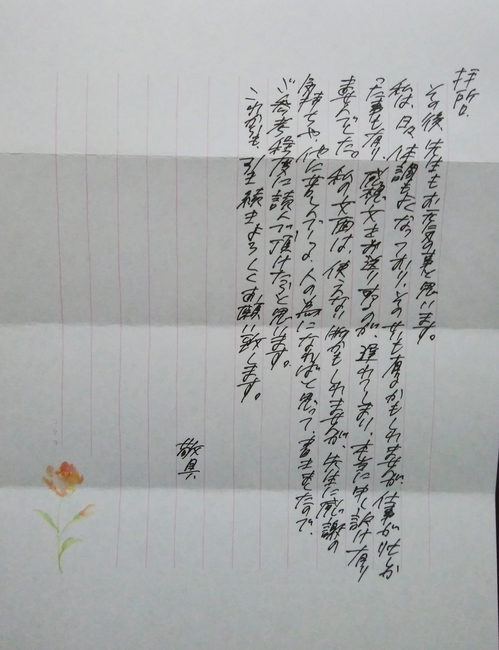 拝啓
その後、先生もお元気の事と思います。
私は、日々、体調もよくなっており、そのせいも有るかもしれませんが仕事が忙しか
った事も有り、感想文をお送りするのが、遅れてしまい、本当に申し訳け有り
ませんでした。私の文面は、使えない物かもしれませんが、先生に感謝の
気持ちや、他に苦しんでいる、人の為になればと思って、書きましたので、
ご参考程度に読んで頂けたらと思います。
これからも、引き続きよろしくお願い致します。
敬具